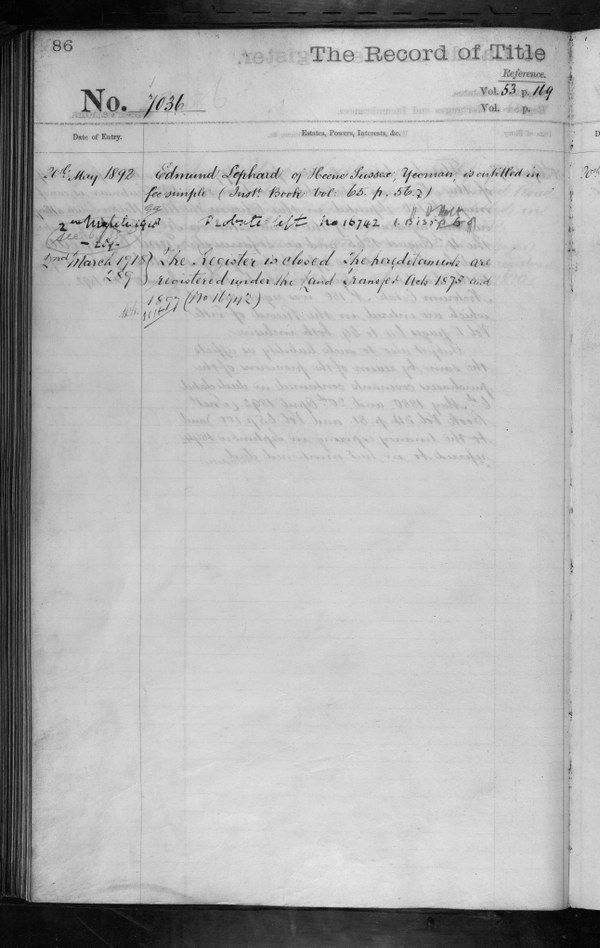 86
The Record of Title
Reference.
Vol. 53 p. 169
No. 7036
Vol. p.
Date of Entry.
Estates, Powers, Interests, &c.
20th May 1892
Edmund Lephard of Heene Sussex, Yeoman, is entitled in
fee simple (Inst. Book Vol. 65. p. 562)
Probate No 16742
2nd March 1918
The Register is closed The hereditaments are
289
registered under the Land Transfer Acts 1875 and
1897 (No 16742)